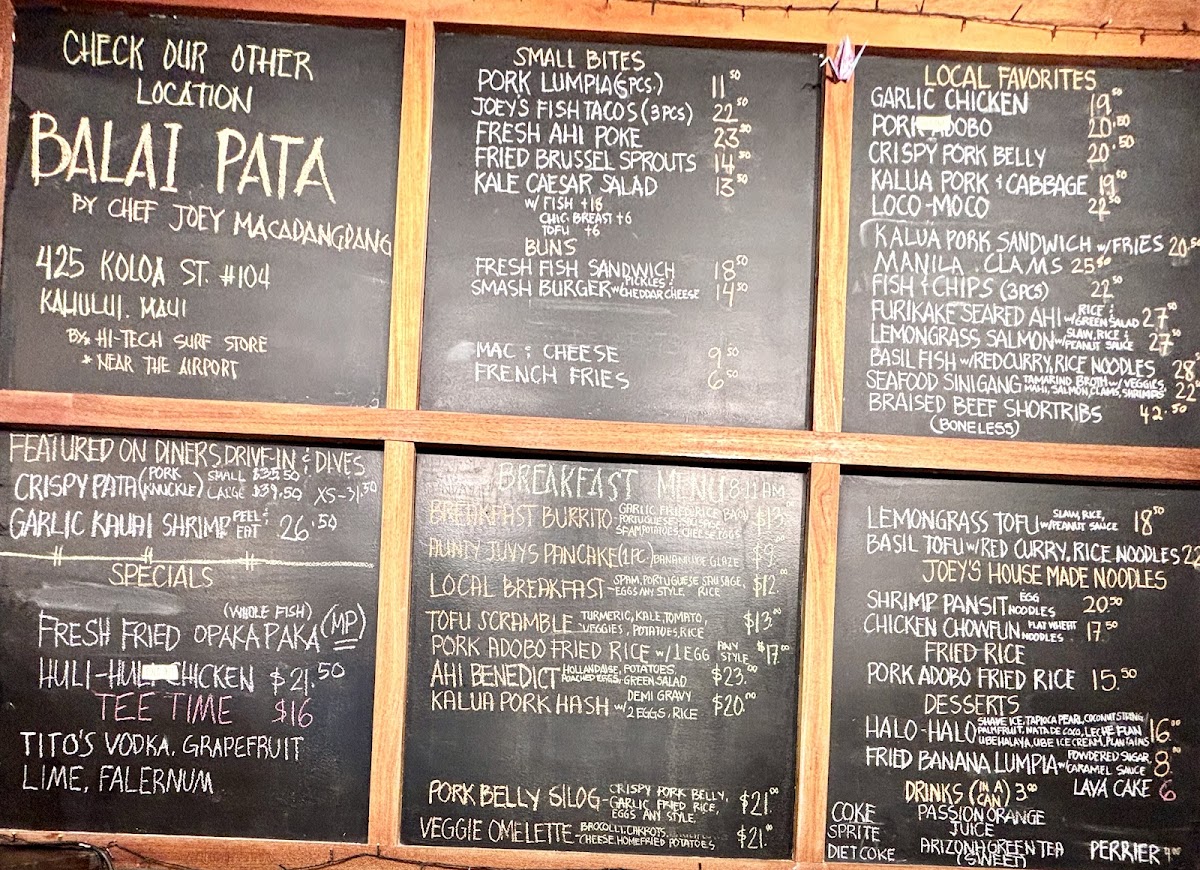 CHECK OUR OTHER
LOCATION
BALAI PATA
BY CHEF JOEY MACADANGDANG
425 KOLOA ST. #104
KAHULUI, MAUI
BY: HI-TECH SURF STORE
* NEAR THE AIRPORT
SMALL BITES
PORK LUMPIA (5PCS.) 11.50
JOEY'S FISH TACOS (3PCS) 22.50
FRESH AHI POKE 23.50
FRIED BRUSSEL SPROUTS 14.50
KALE CAESAR SALAD 13.50
W/ FISH +18
CHIC. BREAST +6
TOFU +6
BUNS
FRESH FISH SANDWICH 18.50
SMASH BURGER W/ PICKLES & CHEDDAR CHEESE 14.50
MAC & CHEESE 9.50
FRENCH FRIES 6.50
LOCAL FAVORITES
GARLIC CHICKEN 19.50
PORK ADOBO 20.50
CRISPY PORK BELLY 20.50
KALUA PORK & CABBAGE 19.50
LOCO-MOCO 22.50
KALUA PORK SANDWICH W/ FRIES 20.50
MANILA CLAMS 25.50
FISH & CHIPS (3PCS) 22.50
FURIKAKE SEARED AHI W/ RICE & GREEN SALAD 27.50
LEMONGRASS SALMON W/ SLAW, RICE & PEANUT SAUCE 27.50
BASIL FISH W/ RED CURRY, RICE NOODLES 28.
SEAFOOD SINIGANG TAMARIND BROTH W/ VEGGIES, MAHI, SALMON, CLAMS, SHRIMPS 22
BRAISED BEEF SHORTRIBS 42.50
(BONELESS)
FEATURED ON DINERS, DRIVE-IN & DIVES
CRISPY PATA (PORK KNUCKLE) SMALL $35.50 LARGE $39.50 XS-31.50
GARLIC KAUAI SHRIMP PEEL & EAT 26.50
SPECIALS
(WHOLE FISH)
FRESH FRIED OPAKAPAKA (MP)
HULI-HULI CHICKEN $21.50
TEE TIME $16
TITO'S VODKA, GRAPEFRUIT
LIME, FALERNUM
BREAKFAST MENU 8-11AM
BREAKFAST BURRITO - GARLIC FRIED RICE, BACON, PORTUGUESE SAUSAGE, SPAM, POTATOES, CHEESE, EGGS $13.
AUNTY JUVYS PANCAKE (1PC) BANANA, UBE GLAZE $9.
LOCAL BREAKFAST - SPAM, PORTUGUESE SAUSAGE, EGGS ANY STYLE RICE $12.
TOFU SCRAMBLE - TURMERIC, KALE, TOMATO, VEGGIES, POTATOES, RICE $13.00
PORK ADOBO FRIED RICE W/ 1 EGG ANY STYLE $17.00
AHI BENEDICT HOLLANDAISE, POTATOES, POACHED EGGS, GREEN SALAD $23.00
KALUA PORK HASH W/ DEMI GRAVY 2 EGGS, RICE $20.00
PORK BELLY SILOG - CRISPY PORK BELLY, GARLIC FRIED RICE, EGGS ANY STYLE $21.00
VEGGIE OMELETTE - BROCOLLI, CARROTS, CHEESE, HOMEFRIED POTATOES $21.00
LEMONGRASS TOFU W/ SLAW, RICE, PEANUT SAUCE 18.50
BASIL TOFU W/ RED CURRY, RICE NOODLES 22
JOEY'S HOUSE MADE NOODLES
SHRIMP PANSIT EGG NOODLES 20.50
CHICKEN CHOWFUN FLAT WHEAT NOODLES 17.50
FRIED RICE
PORK ADOBO FRIED RICE 15.50
DESSERTS
HALO-HALO SHAVE ICE, TAPIOCA PEARL, COCONUT STRING, PALMFRUIT, NATA DE COCO, LECHE FLAN, UBE HALAYA, UBE ICE CREAM, PLANTAINS 16.00
FRIED BANANA LUMPIA W/ POWDERED SUGAR, CARAMEL SAUCE 8.00
LAVA CAKE 6
DRINKS (IN A CAN) 3.00
COKE
SPRITE
DIET COKE
PASSION ORANGE
JUICE
ARIZONA GREEN TEA
(SWEET)
PERRIER 4.00